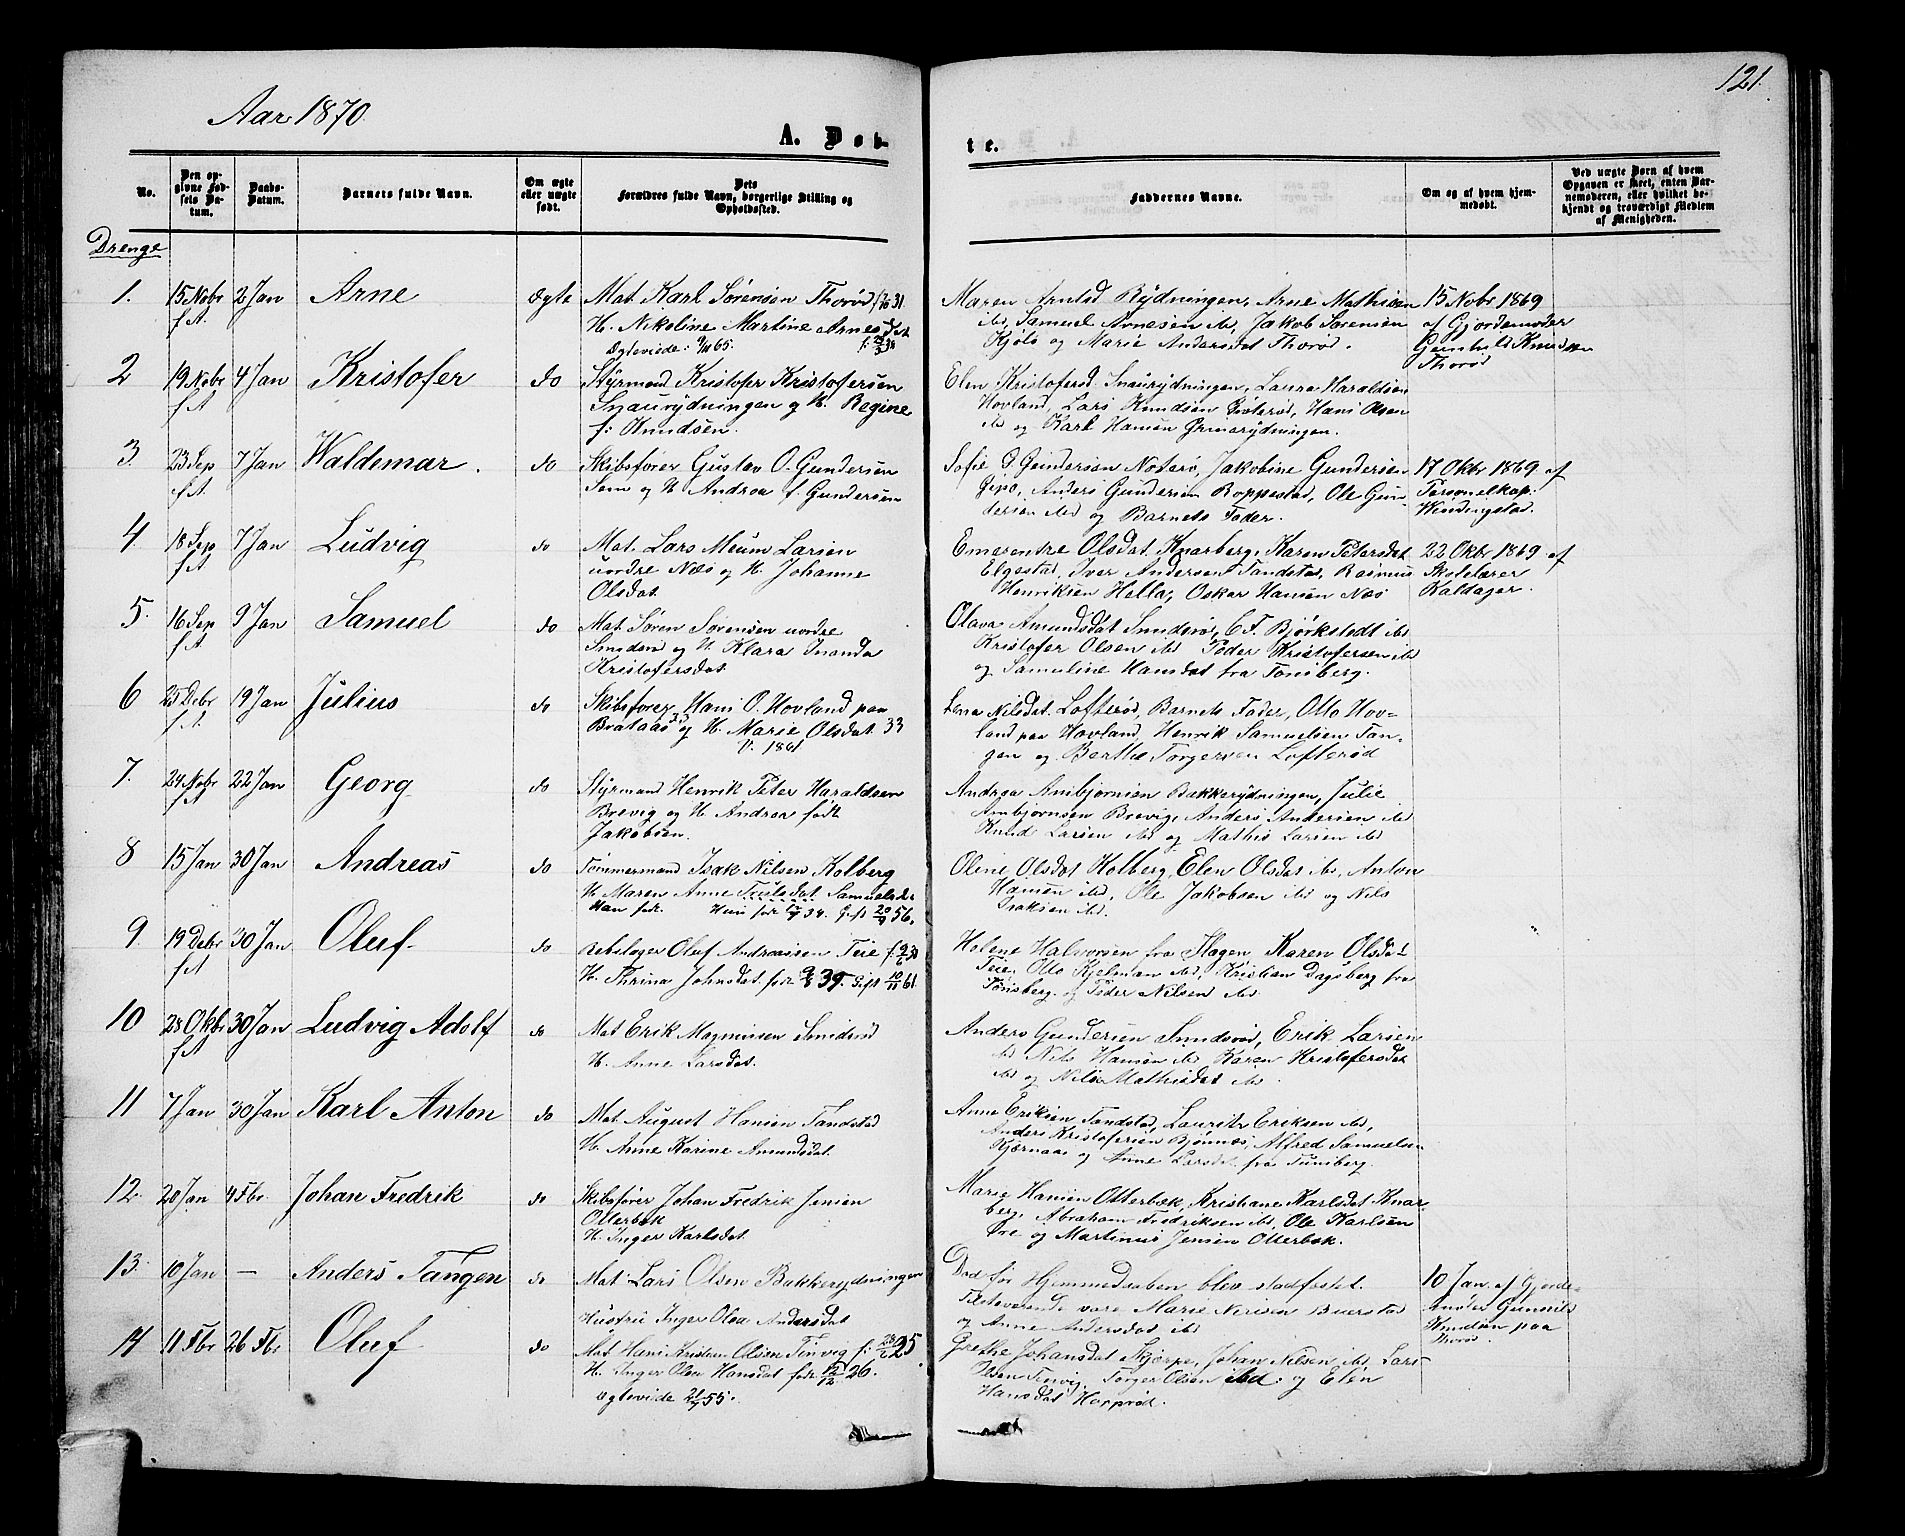 121.
Aar 1870.
A. Døb-
te.
No.
Den op-
givne Fød-
sels Da-
tum.
Daabs-
Datum.
Barnets fulde Navn.
Om ægte
eller uægte
født.
Dets
Forældres fulde Navn, borgerlige Stilling og
Opholdssted.
Faddernes Navne.
Om og af hvem hjem-
medøbt.
Ved uægte Børn af hvem
Opgaven er skeet, enten Bar-
nemoderen, eller hvilket be-
kjendt og troværdigt Medlem
af Menigheden.
Drenge
1. 15 Nobr 2 Jan Arne ægte
f. A.
Mat. Karl Sørensen Thorød
H. Nikoline Martine Arnesdat
Ægteviede: 9/11 65.
Maren Arntsd Rydningen, Arne Mathisen
ibd, Samuel Arnesen ibd, Jakob Sørensen
Kjolø og Marie Andersdat Thorød.
15 Nobr 1869
af Gjordemoder
Gunhild Knudsen
Thorød
2 19 Nobr 4 Jan Kristofer do
f. A
Styrmand Kristofer Kristofersen
Snaurydningen og H. Regine
f: Knudsen.
Elen Kristofersd. Snaurydningen, Laura Haraldsen
Hovland, Lars Knudsen, Hans Olsen
ibd og Karl Hansen Ormarydningen.
3. 23 Sep 7 Jan Waldemar. do
f. A.
Skibsfører Gustav O. Gundersen
Sem og H. Andrea f. Gundersen
Sofie O Gundersen Noterø, Jakobine Gundersen
Gipø, Anders Gundersen Roppestad, Ole Gun-
dersen ibd og Barnets Fader.
17 Okbr 1869 af
Personelkap:
Windingstad.
4. 18 Sep 7 Jan Ludvig do
f. A
Mat. Lars Meum Larsen
nordre Næs og H. Johanne
Olsdat.
Emerentse Olsdat. Knarberg, Karen Petersdat
Elgestad, Iver Andersen Tandstad, Rasmus
Henriksen Hella, Oskar Hansen Næs
22 Okbr 1869 af
Skolelærer
Kaldager.
5. 16 Sep 9 Jan Samuel do
f. A
Mat. Søren Sørensen nordre
Smidsrød og H. Klara Inanda
Kristofersdat
Olava Amundsdat Smidsrød, C F. Bjørkstedt ibd
Kristofer Olsen ibd Peder Kristofersen ibd
og Samueline Hansdat fra Tønsberg.
6 25 Debr 19 Jan Julius do
f. A
Skibsfører Hans O. Hovland paa
Brataas og H. Marie Olsdat. 33
V. 1861
Lena Nilsdat. Lofterød, Barnets Fader, Otto Hov-
land paa Hovland, Henrik Samuelsen Tan-
gen og Berthe Torgersen Lofterød
7. 24 Nobr 22 Jan Georg do
f. A
Styrmand Henrik Peter Haraldsen
Brevig og H. Andrea født
Jakobsen.
Andrea Anbjørnsen Bakkerydningen, Julie
Anbjørnsen Brevig, Anders Andersen ibd
Knud Larsen ibd og Mathis Larsen ibd
8 15 Jan 30 Jan Andreas do
Tømmermand Isak Nilsen Kolberg
H. Maren Anne Teilsdat Samuelsd.
Han født. Hun født 34. Gift 20/9 56.
Oline Olsdat Kolberg, Elen Olsdat ibd, Anton
Hansen ibd, Ole Jakobsen ibd og Nils
Isaksen ibd.
9. 19 Debr 30 Jan Oluf do
f. A
Rebslager Oluf Andreassen Teie
H. Thrina Johnsdat. født 39. Gift 10/11 61.
Helene Halvorsen fra Slagen, Karen Olsdat
Teie, Otto Kjelman ibd, Kristian Dagsberg fra
Tønsberg og Peder Nilsen ibd.
10 28 Okbr 30 Jan Ludvig Adolf do
f. A
Mat Erik Magnussen Smidsrød
H. Anne Larsdat.
Anders Gundersen Smidsrød, Erik Larsen
ibd Nils Hansen ibd Karen Kristofersdat
ibd og Nilia Mathisdat ibd.
11 7 Jan 30 Jan Karl Anton do
Mat August Hansen Tandstad
H. Anne Karine Amundsdat.
Anne Eriksen Tandstad, Lauritz Eriksen ibd,
Anders Kristofersen Bjønnes, Alfred Samuelsen
Kjærnaas og Anne Larsdat fra Tønsberg.
12. 20 Jan 4 Fbr. Johan Fredrik do
Skibsfører Johan Fredrik Jensen
Otterbæk
H. Inger Karlsdat.
Marie Hansen Otterbæk, Kristiane Karlsdat Knar-
berg, Abraham Fredriksen ibd, Ole Karlsen
Øre og Martinus Jensen Otterbæk.
13. 10 Jan — Anders Tangen do
Mat. Lars Olsen Bakkerydningen
Hustru Inger Olea Andersdat
Død før Hjemmedaaben blev stadfæstet.
Tilstedeværende vare Marie Nersen Buerstad
og Anne Andersdat ibd
10 Jan. af Gjorde-
moder Gunnild
Knudsen paa
Thorød.
14 11 Fbr 26 Fbr Oluf do
Mat Hans Kristian Olsen Tenvig f. 28/6 25
H. Inger Olea Hansdat født 12/12 26.
Ægteviede 21/7 55.
Grethe Johansdat Skjerpe, Johan Nilsen ibd, Lars
Olsen Tenvig, Torger Olsen ibd: og Elen
Hansdat Horprød.